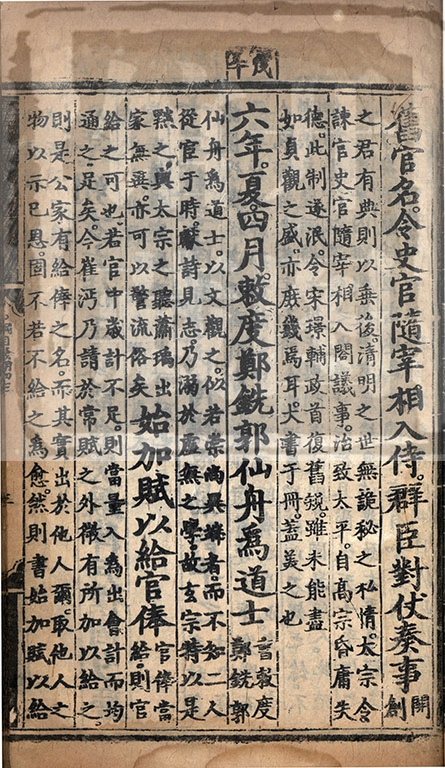 戊午
舊官名。令史官隨宰相入侍。群臣對仗奏事
開創
之君有典則以垂後。清明之世無詭秘之私情。太宗令
諫官史官隨宰相入閤議事。治致太平。自高宗昏庸失
德。此制遂泯。今宋璟輔政首復舊規。雖未能盡
如貞觀之盛。亦庶幾焉耳。大書于冊。蓋美之也
六年。夏。四月。敕度鄭銑郭仙舟爲道士
書敕度
鄭銑郭
仙舟爲道士。以文觀之。似若崇尚異端者。而不知二人
從官于時。獻詩見志。乃溺於虛無之學。故玄宗特以是
黙之。與太宗之聽蕭瑀出
家無異。亦可以警流俗矣
始加賦以給官俸
官俸當
給。則官
給之可也。若官中歲計不足。則當量入爲出會計而均
通之。足矣。今崔沔乃請於常賦之外徵有所加以給之。
則是公家有給俸之名。而其實出於他人爾。取他人之
物以示已恩。固不若不給之爲愈。然則書始加賦以給